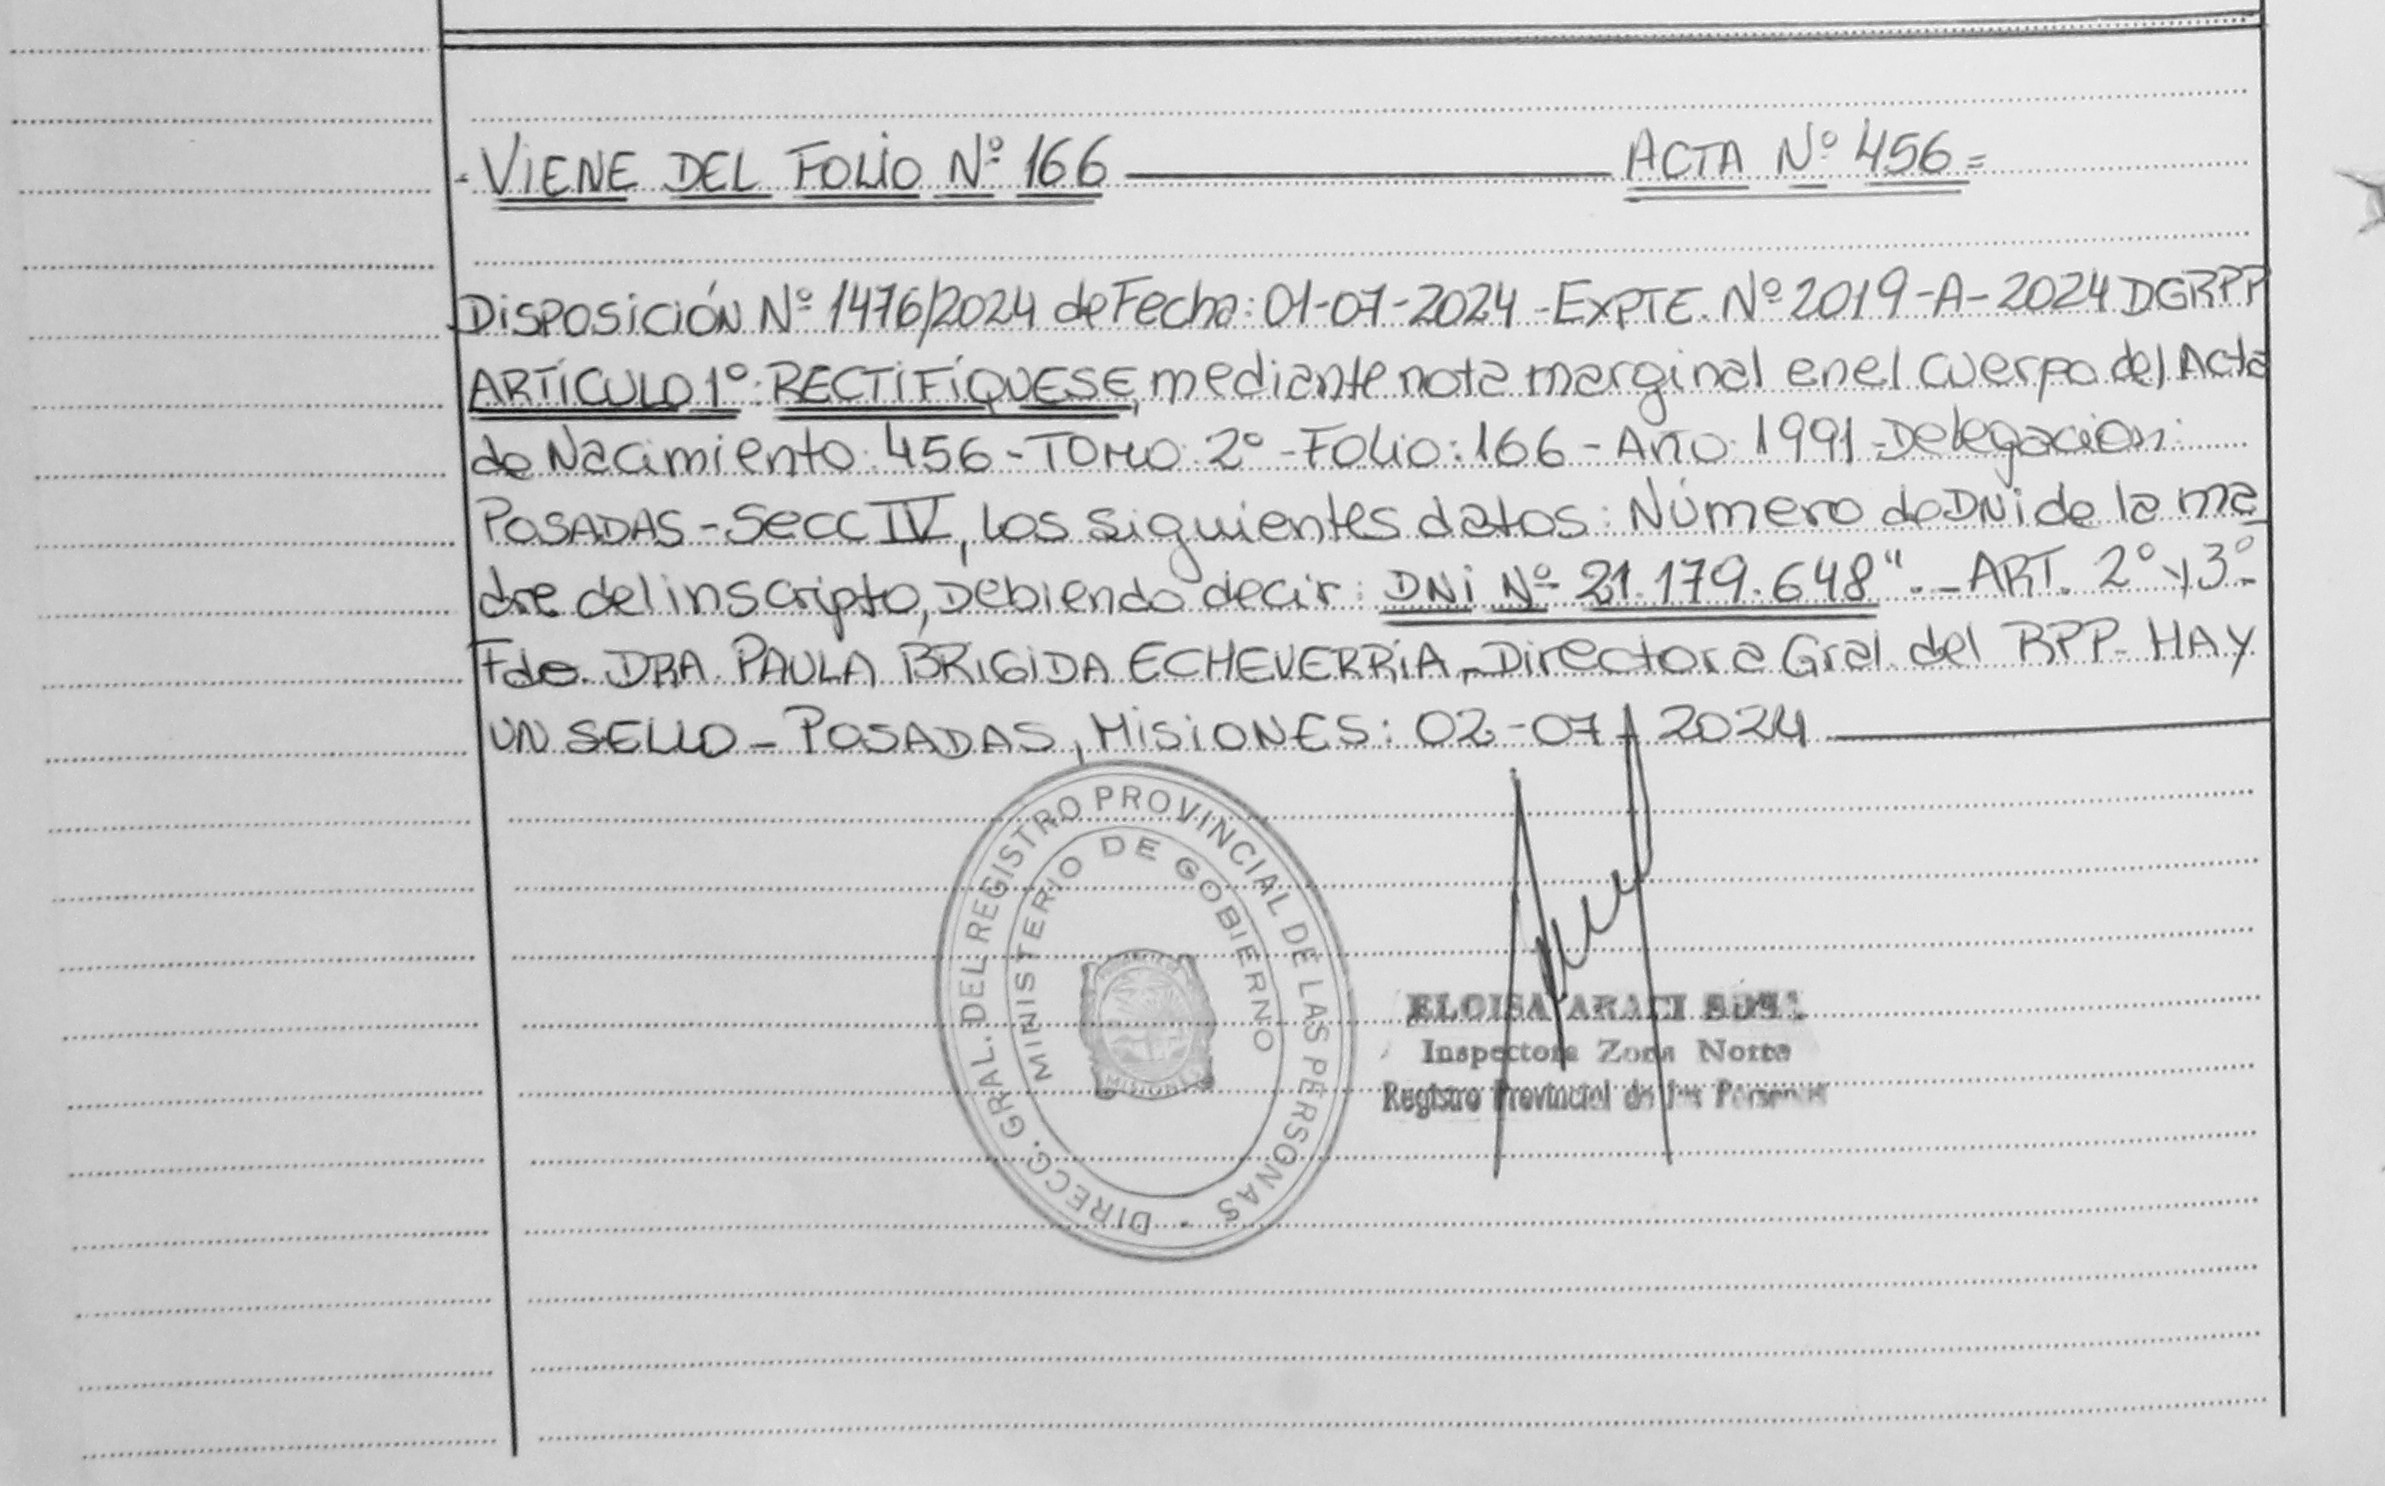 - VIENE DEL FOLIO Nº 166 ACTA Nº 456=
DISPOSICIÓN Nº 1476/2024 de Fecha: 01-07-2024 - EXPTE. Nº 2019-A-2024 DGRPP
ARTÍCULO 1º: RECTIFÍQUESE, mediante nota marginal en el cuerpo del Acta
de Nacimiento: 456 - TOMO: 2º - FOLIO: 166 - AÑO: 1991 - Delegación:
POSADAS - SECC IV, los siguientes datos: Número de DNI de la ma
dre del inscripto, Debiendo decir: DNI Nº 21.179.648". - ART. 2º y 3º-
Fdo. DRA. PAULA BRIGIDA ECHEVERRÍA - Directora Gral. del RPP - HAY
UN SELLO - POSADAS, MISIONES: 02-07-2024
DIRECC. GRAL. DEL REGISTRO PROVINCIAL DE LAS PERSONAS
MINISTERIO DE GOBIERNO
MISIONES
ELOISA ARACI
Inspectora Zona Norte
Registro Provincial de las Personas